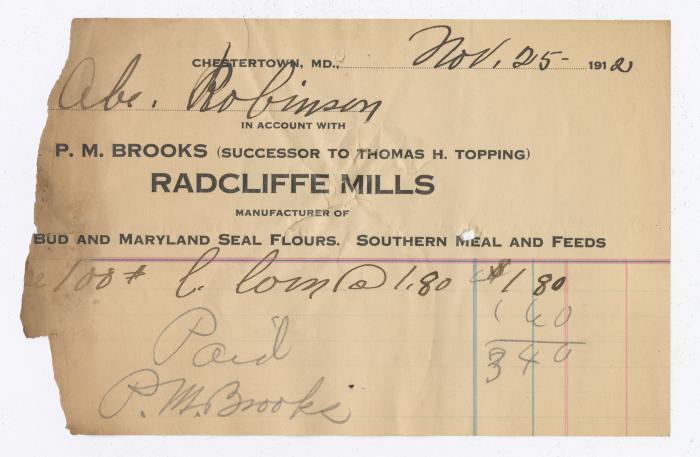 CHESTERTOWN, MD., Nov. 25- 1912
Abe. Robinson
IN ACCOUNT WITH
P. M. BROOKS (SUCCESSOR TO THOMAS H. TOPPING)
RADCLIFFE MILLS
MANUFACTURER OF
BUD AND MARYLAND SEAL FLOURS. SOUTHERN MEAL AND FEEDS
100 # C. Corn @ 1.80 $1 80
1 60
3 40
Paid
P. M. Brooks